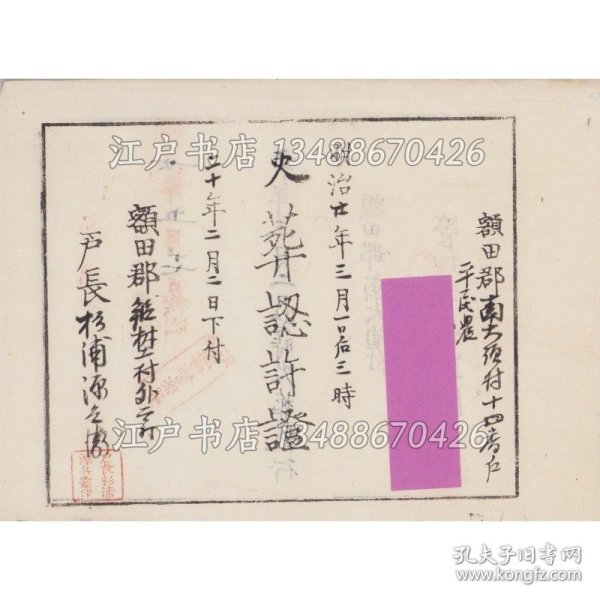 額田郡南大須村十四番戸
平民農
明治廿年三月一日后三時
火葬認許證
二十年二月二日下付
額田郡 村外
戸長 杉浦源
江户书店 13488670426
江户书店 13488670426
江户书店 13488670426
孔夫子旧书网
www.kongfz.com